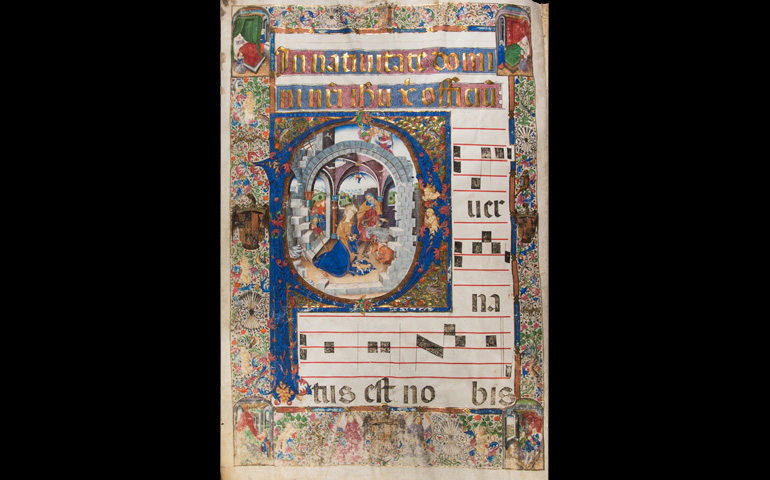 In natiuitate domi
ni nr̄i Ihu officiū
Puer
na
tus est no bis